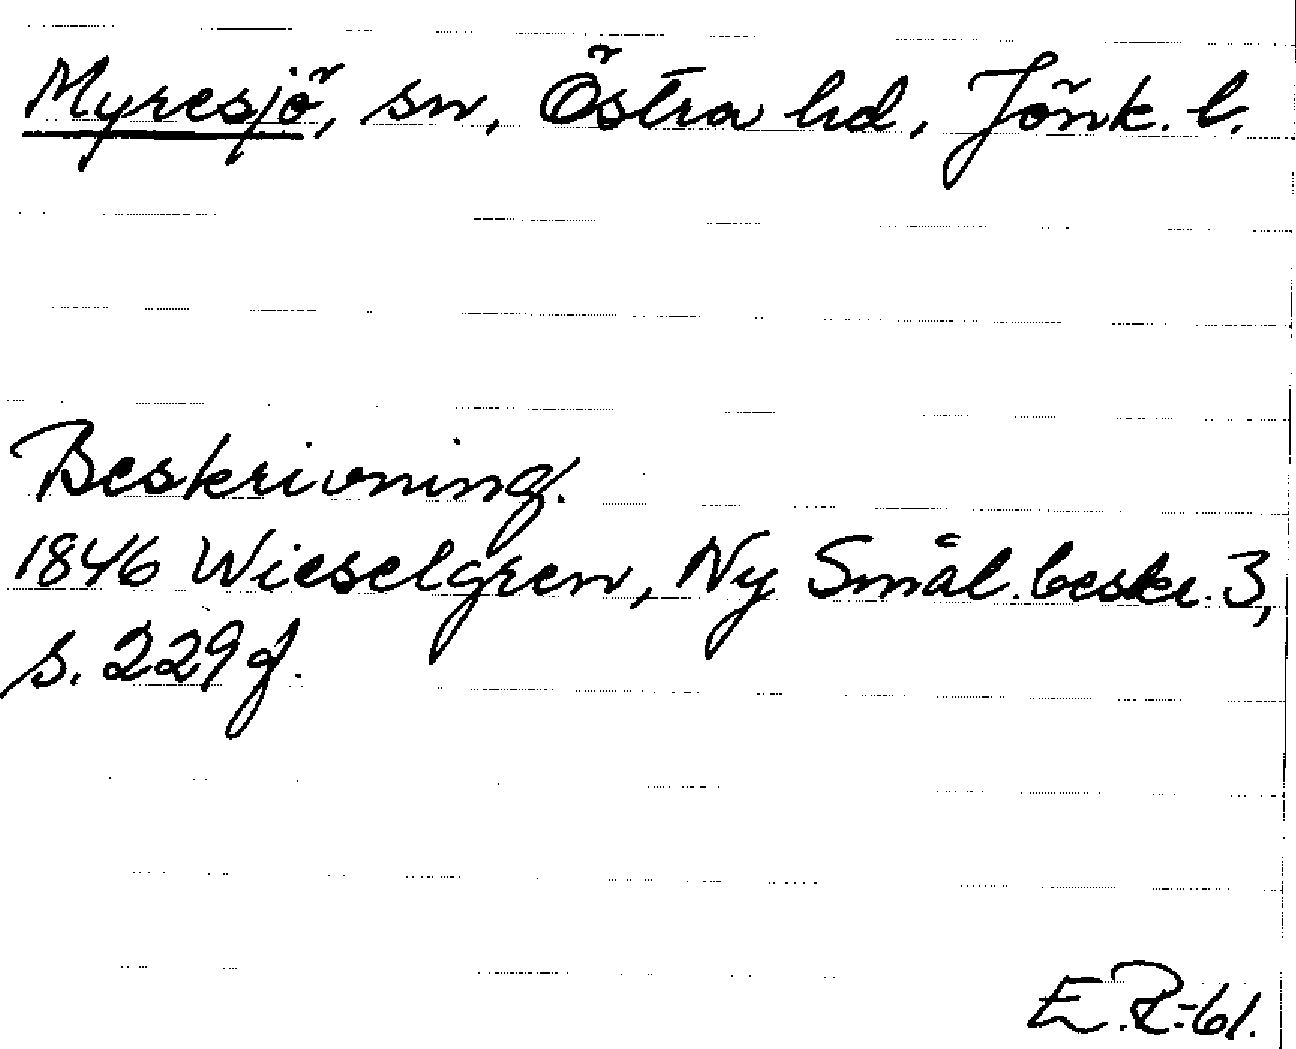 Myresjö, sn, Östra hd, Jönk. l.
Beskrivning.
1846 Wieselgren, Ny Smål. beskr. 3,
s. 229 f.
E.R.-61.